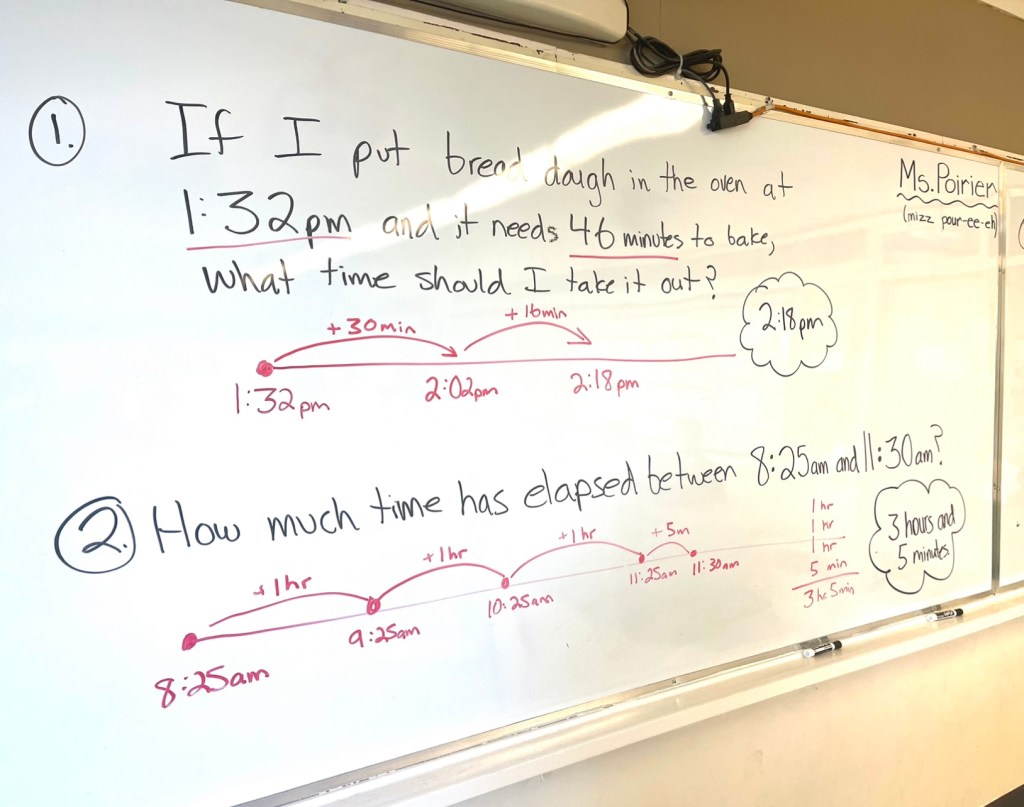 1. If I put bread dough in the oven at
1:32pm and it needs 46 minutes to bake,
what time should I take it out?
+30min
+16min
1:32pm
2:02pm
2:18pm
2:18pm
Ms. Poirier
(mizz pour-ee-eh)
2. How much time has elapsed between 8:25am and 11:30am?
+1hr
+1hr
+1hr
+5m
8:25am
9:25am
10:25am
11:25am
11:30am
1 hr
1 hr
1 hr
5 min
3hr 5min
3 hours and
5 minutes.